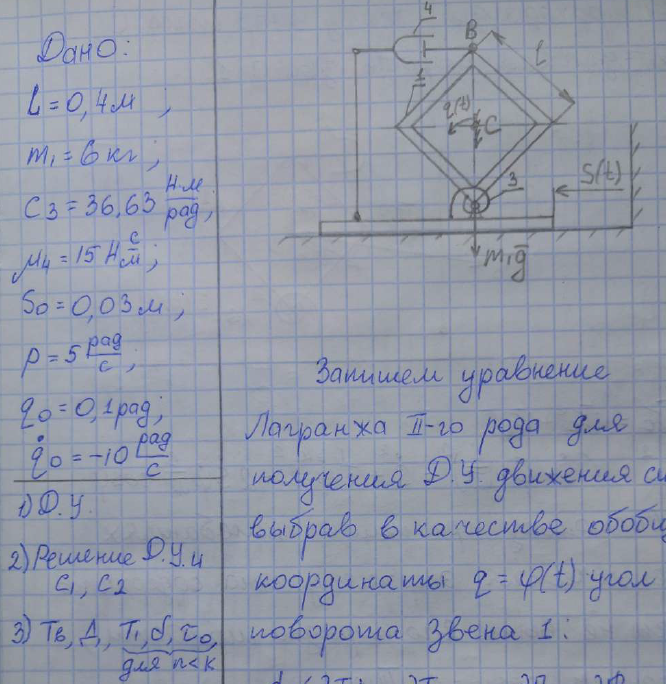 Дано:
L = 0,4 м ;
m₁ = 6 кг ;
c₃ = 36,63 Н·м/рад ;
μ₄ = 15 Н с/м ;
S₀ = 0,03 м ;
p = 5 рад/с ;
q₀ = 0,1 рад ;
q̇₀ = -10 рад/с
1) Д.У.
2) Решение Д.У. и
C₁, C₂
3) Tв, Д, T₁, δ, τ₀,
для n<k
4
B
1
l
q(t)
C
3
S(t)
m₁g̅
Запишем уравнение
Лагранжа II-го рода для
получения Д.У. движения
выбрав в качестве
координаты q = φ(t) угол
поворота звена 1: